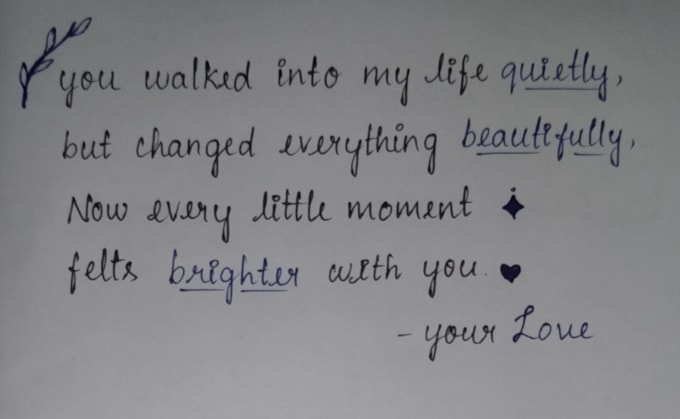 you walked into my life quietly,
but changed everything beautifully,
Now every little moment ✦
felts brighter with you. ♥
- your Love